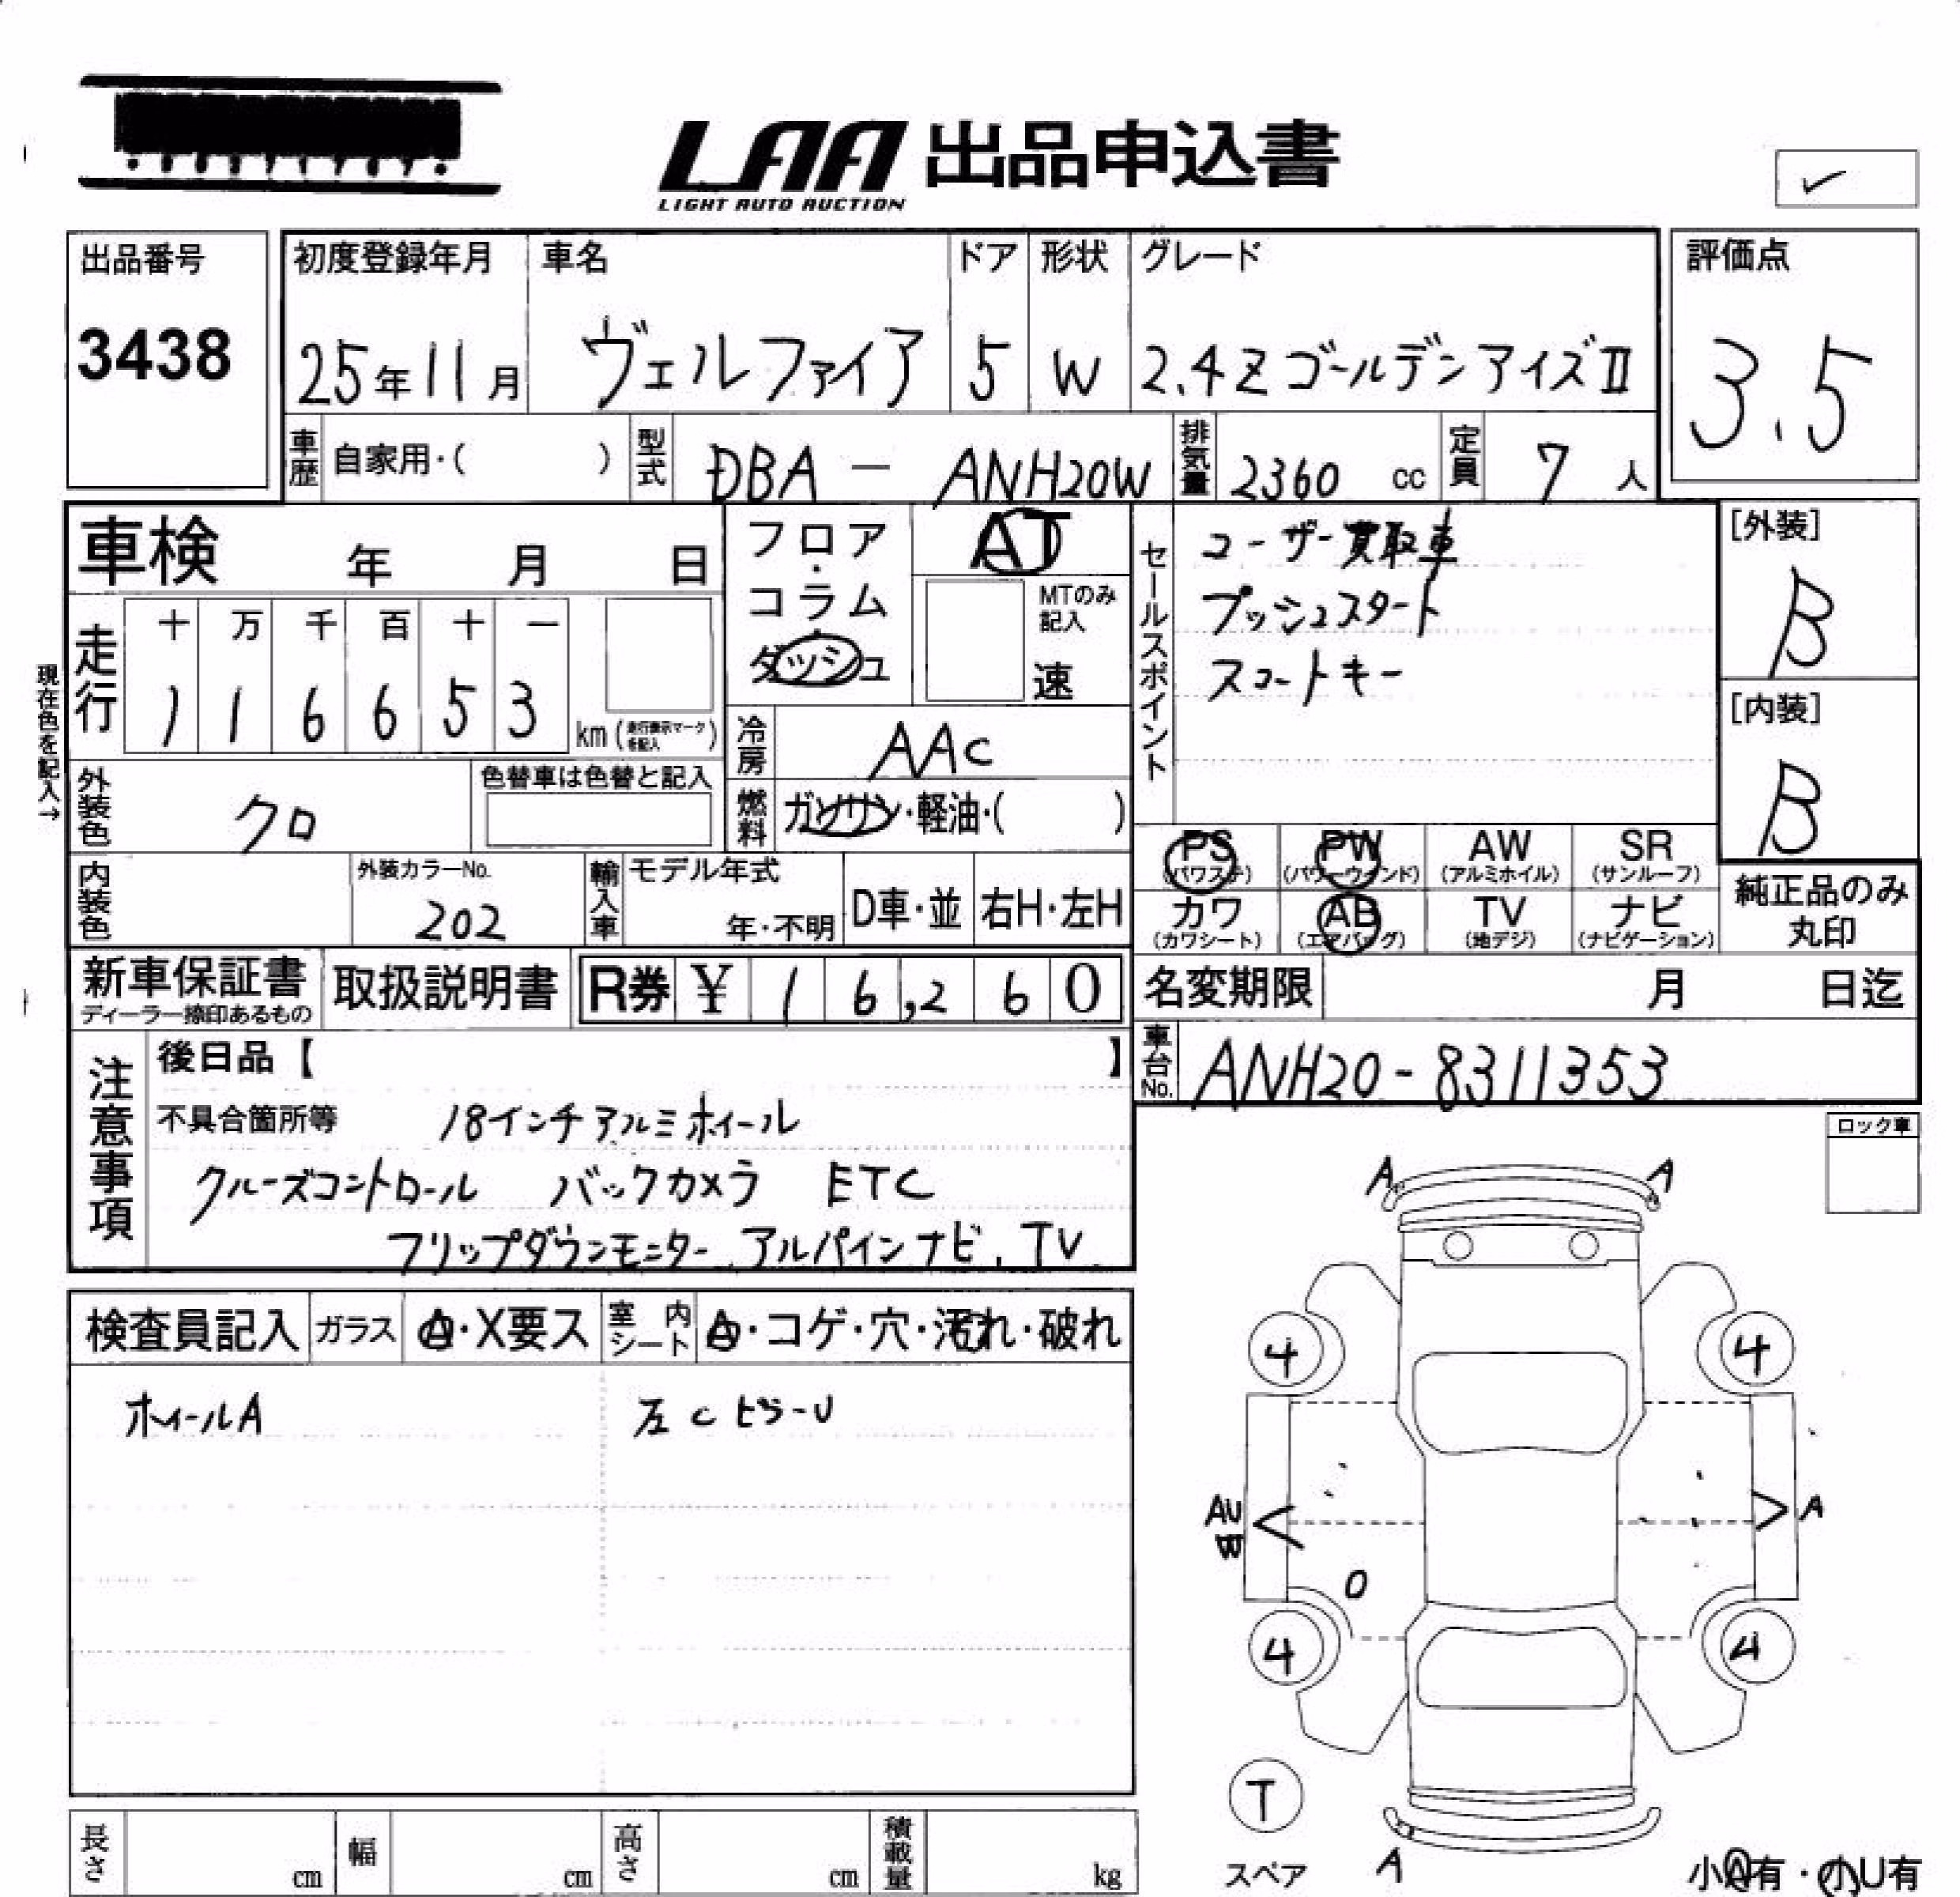 LAA 出品申込書
LIGHT AUTO AUCTION
✓
出品番号
3438
初度登録年月
25年11月
車名
ヴェルファイア
ドア
5
形状
W
グレード
2.4Z ゴールデンアイズⅡ
評価点
3.5
車歴 自家用・( )
型式 DBA - ANH20W
排気量 2360 cc
定員 7 人
車検 年 月 日
フロア・コラム・ダッシュ
AT
MTのみ記入
速
セールスポイント
ユーザー買取車
プッシュスタート
スマートキー
[外装]
B
[内装]
B
現在色を記入→
走行
十 万 千 百 十 一
1 1 6 6 5 3
km (走行表示マークを記入)
冷房 AAC
燃料 ガソリン・軽油・( )
外装色 クロ
色替車は色替と記入
内装色
外装カラーNo.
202
輸入車
モデル年式
年・不明
D車・並
右H・左H
PS (パワステ)
PW (パワーウインド)
AW (アルミホイル)
SR (サンルーフ)
カワ (カワシート)
AB (エアバッグ)
TV (地デジ)
ナビ (ナビゲーション)
純正品のみ
丸印
新車保証書
ディーラー捺印あるもの
取扱説明書
R券 ¥ 16,260
名変期限 月 日迄
車台No. ANH20-8311353
注意事項
後日品【 】
不具合箇所等 18インチアルミホイール
クルーズコントロール バックカメラ ETC
フリップダウンモニター、アルパインナビ、TV
ロック車
検査員記入
ガラス A・X要ス
室内シート A・コゲ・穴・汚れ・破れ
ホイールA
左CピラーU
A A
4 4
AU
W
A
O
4 4
T
スペア
A
小A有・小U有
長さ cm
幅 cm
高さ cm
積載量 kg